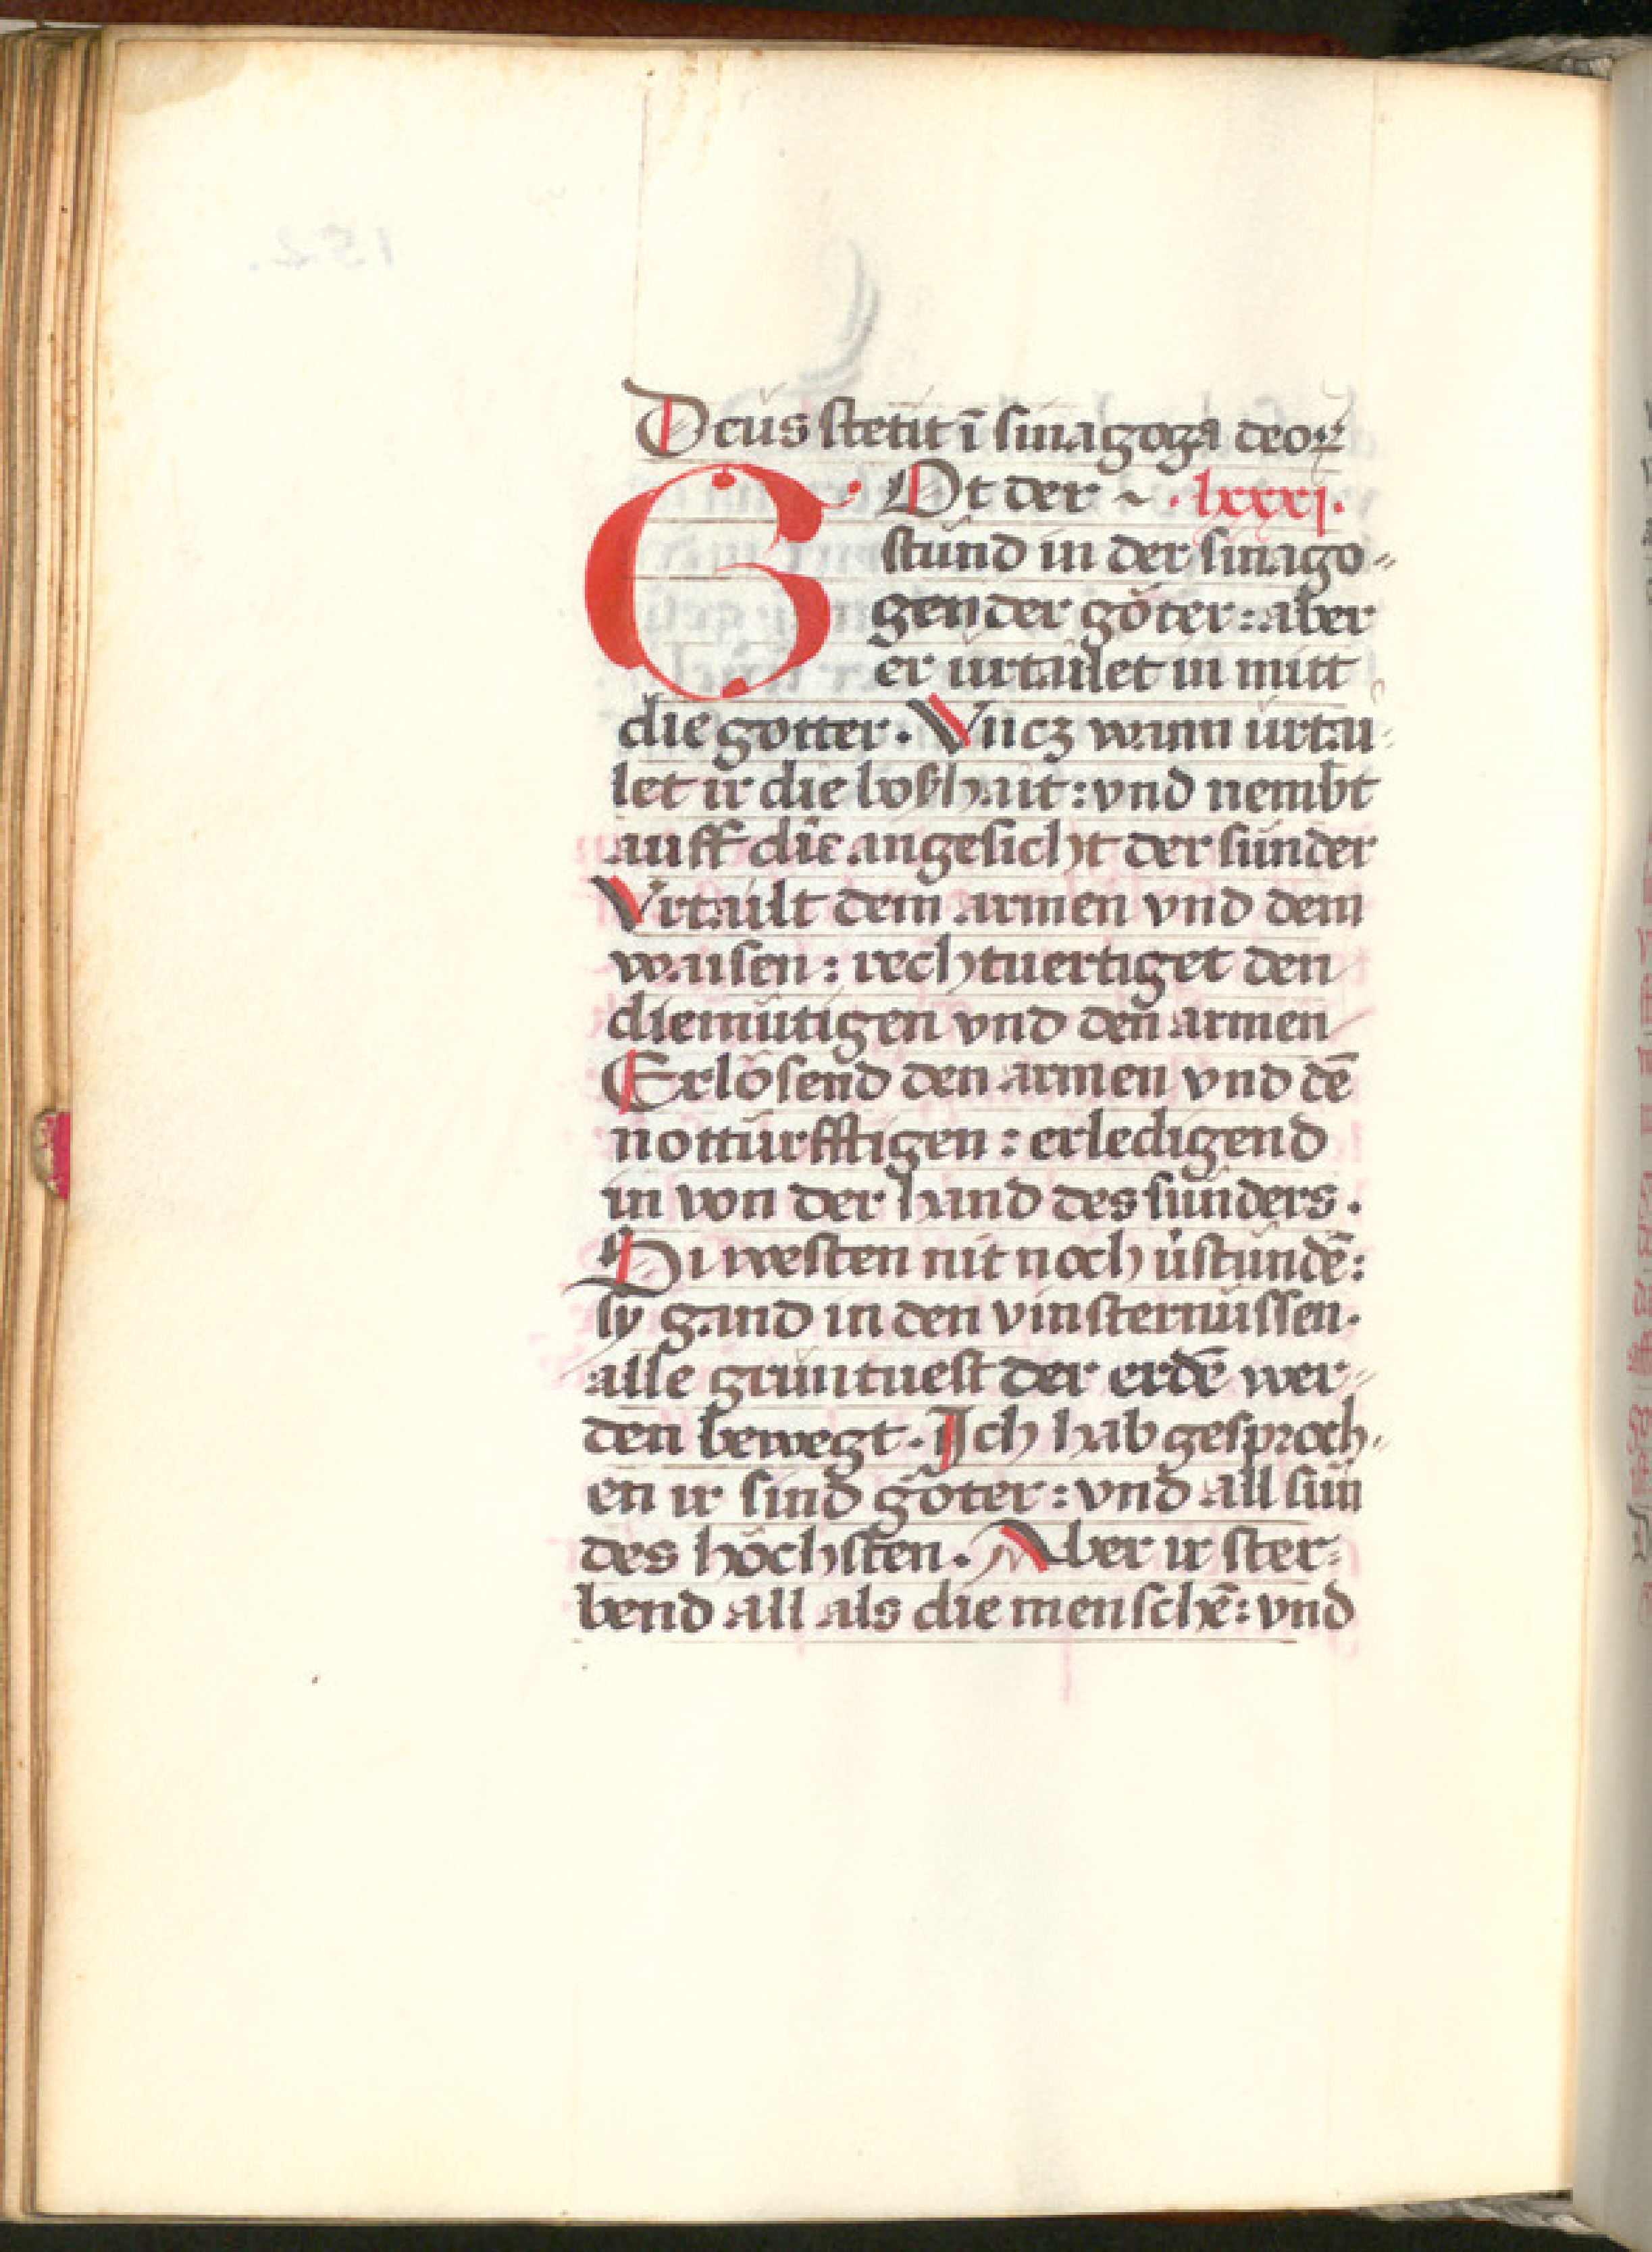 Deus stetit ī sinagoga deoꝝ
GOt der ~ · lxxxj ·
stŭnd in der sinago⸗
gen der gŏter : aber
er ŭrtailet in mitt
die gotter · Vncz wann ŭrtai⸗
let ir die boßhait : vnd nembt
auff die angesicht der sŭnder
Vrtailt dem armen vnd dem
waisen : rechtuertiget den
diemŭtigen vnd den armen
Erlŏsend den armen vnd dē
notturfftigen : erledigend
in von der hand des sŭnders ·
Si westen nit noch ŭstŭndē :
sy gand in den vinsternŭssen ·
alle grŭntuest der erdē wer⸗
den bewegt · Ich hab gesproch⸗
en ir sind gŏter : vnd all sŭn
des hŏchsten · Aber ir ster⸗
bend all als die menschē : vnd